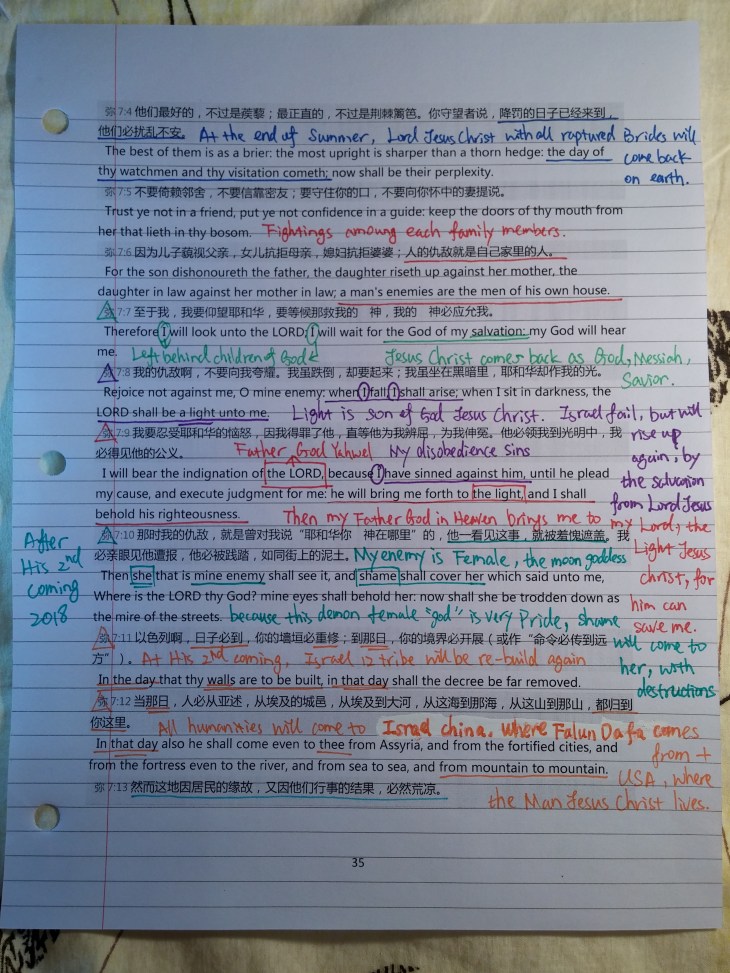 弥 7:4 他们最好的，不过是蒺藜；最正直的，不过是荆棘篱笆。你守望者说，降罚的日子已经来到，
他们必扰乱不安。 At the end of Summer, Lord Jesus Christ with all raptured Brides will
come back
on earth.
The best of them is as a brier: the most upright is sharper than a thorn hedge: the day of
thy watchmen and thy visitation cometh; now shall be their perplexity.
弥 7:5 不要倚赖邻舍，不要信靠密友；要守住你的口，不要向你怀中的妻提说。
Trust ye not in a friend, put ye not confidence in a guide: keep the doors of thy mouth from
her that lieth in thy bosom. Fightings amoung each family members.
弥 7:6 因为儿子藐视父亲，女儿抗拒母亲，媳妇抗拒婆婆；人的仇敌就是自己家里的人。
For the son dishonoureth the father, the daughter riseth up against her mother, the
daughter in law against her mother in law; a man's enemies are the men of his own house.
弥 7:7 至于我，我要仰望耶和华，要等候那救我的 神，我的 神必应允我。
Therefore I will look unto the LORD; I will wait for the God of my salvation: my God will hear
me. Left behind children of God Jesus Christ comes back as God, Messiah,
Savior.
弥 7:8 我的仇敌啊，不要向我夸耀。我虽跌倒，却要起来；我虽坐在黑暗里，耶和华却作我的光。
Rejoice not against me, O mine enemy: when I fall, I shall arise; when I sit in darkness, the
LORD shall be a light unto me. Light is son of God Jesus Christ. Israel fail, but will
rise up
again, by
the salvation
from Lord Jesus
弥 7:9 我要忍受耶和华的恼怒，因我得罪了他，直等他为我辨屈，为我伸冤。他必领我到光明中，我
必得见他的公义。 Father God Yahwel My disobedience Sins
I will bear the indignation of the LORD, because I have sinned against him, until he plead
my cause, and execute judgment for me: he will bring me forth to the light, and I shall
behold his righteousness. Then my Father God in Heaven brings me to my Lord, the
Light Jesus
christ, for
him can
save me.
弥 7:10 那时我的仇敌，就是曾对我说“耶和华你 神在哪里”的，他一看见这事，就被羞愧遮盖。我
必亲眼见他遭报，他必被践踏，如同街上的泥土。 My enemy is Female, the moon goddess
After
His 2nd
coming
2018
Then she that is mine enemy shall see it, and shame shall cover her which said unto me,
Where is the LORD thy God? mine eyes shall behold her: now shall she be trodden down as
the mire of the streets. because this demon female "god" is very Pride, shame
will come to
her, with
destructions
弥 7:11 以色列啊，日子必到，你的墙垣必重修；到那日，你的境界必开展（或作“命令必传到远
方”）。 At His 2nd coming, Israel 12 tribe will be re-build again
In the day that thy walls are to be built, in that day shall the decree be far removed.
弥 7:12 当那日，人必从亚述，从埃及的城邑，从埃及到大河，从这海到那海，从这山到那山，都归到
你这里。 All humanities will come to Israel china, where Falun Dafa comes
from +
USA, where
the Man Jesus Christ lives.
In that day also he shall come even to thee from Assyria, and from the fortified cities, and
from the fortress even to the river, and from sea to sea, and from mountain to mountain.
弥 7:13 然而这地因居民的缘故，又因他们行事的结果，必然荒凉。
35